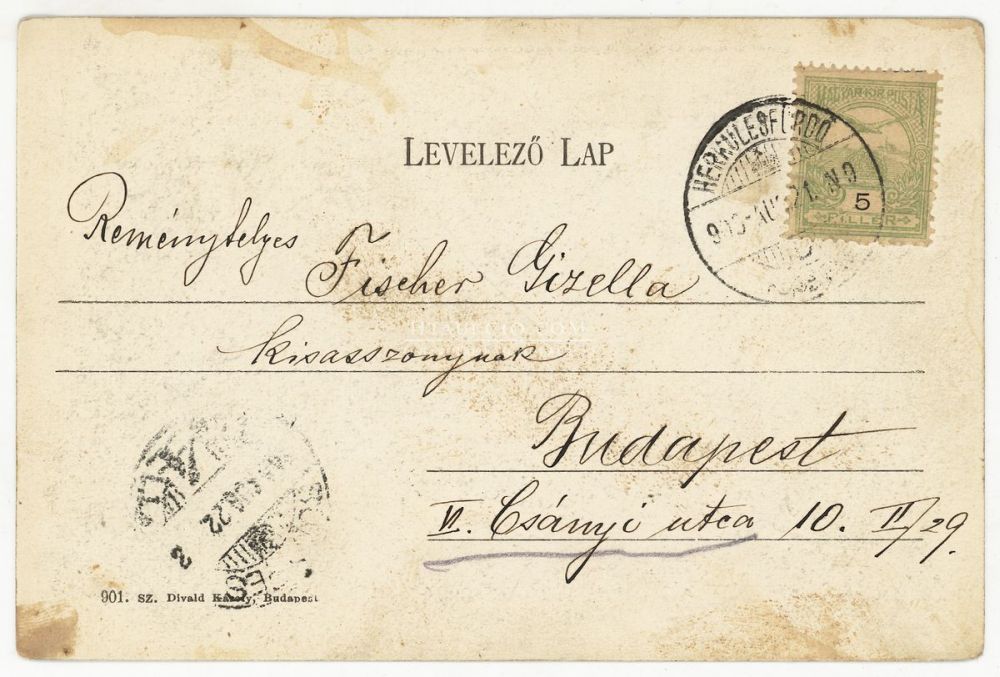 LEVELEZŐ LAP
MAGYAR KIR. POSTA
5
FILLER
HERKULESFÜRDŐ
Reményteljes
Fischer Gizella
kisasszonynak
Budapest
VI. Csányi utca 10. II/29.
22
901. SZ. Divald Károly, Budapest